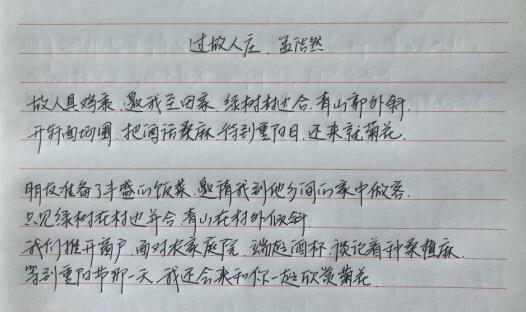 过故人庄.孟浩然
故人具鸡黍.邀我至田家.绿树村边合.青山郭外斜.
开轩面场圃.把酒话桑麻.待到重阳日.还来就菊花.
朋友准备了丰盛的饭菜.邀请我到他乡间的家中做客.
只见绿树在村边并合.青山在村外倾斜.
我们推开窗户.面对农家庭院.端起酒杯.谈论着种桑植麻.
等到重阳节那一天.我还会来和你一起欣赏菊花.